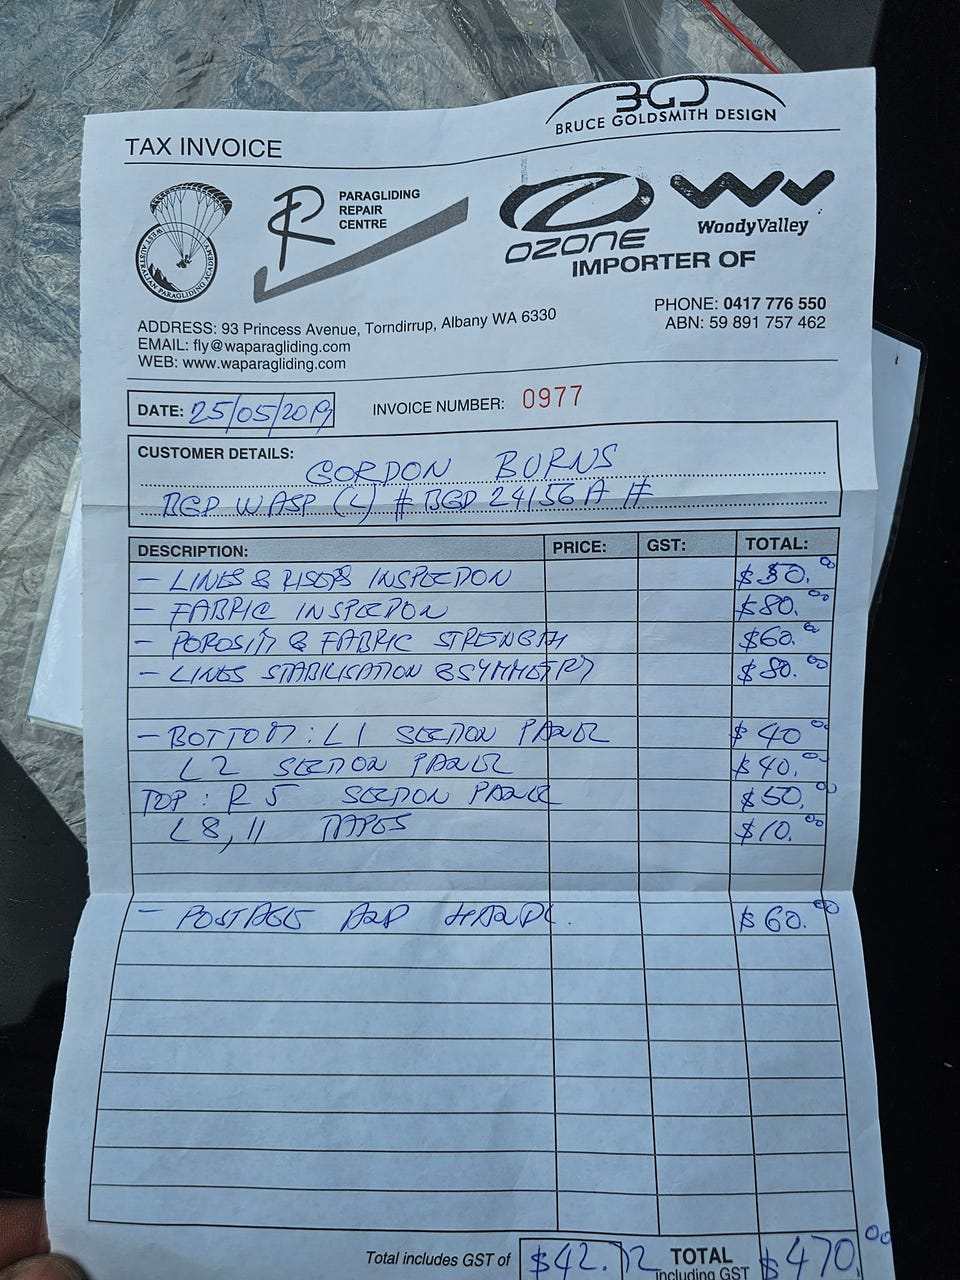 BGD
BRUCE GOLDSMITH DESIGN
TAX INVOICE
WEST AUSTRALIAN PARAGLIDING ACADEMY
R PARAGLIDING
REPAIR
CENTRE
OZONE
WoodyValley
IMPORTER OF
PHONE: 0417 776 550
ABN: 59 891 757 462
ADDRESS: 93 Princess Avenue, Torndirrup, Albany WA 6330
EMAIL: fly@waparagliding.com
WEB: www.waparagliding.com
DATE: 25/05/2019 INVOICE NUMBER: 0977
CUSTOMER DETAILS:
GORDON BURNS
BGD WASP (L) # BGD 24156A #
DESCRIPTION: PRICE: GST: TOTAL:
- LINES & INSPECTION
- FABRIC INSPECTION $80.00
- POROSITY & FABRIC STRENGTH $60.00
- LINES STABILISATION & SYMMETRY $80.00
- BOTTOM: L1 SECTION PANEL $40.00
L2 SECTION PANEL $40.00
TOP: R5 SECTION PANEL $50.00
L8, 11 TAPES $10.00
- POSTAGE AND HANDL. $60.00
Total includes GST of $42.72 TOTAL including GST $470.00